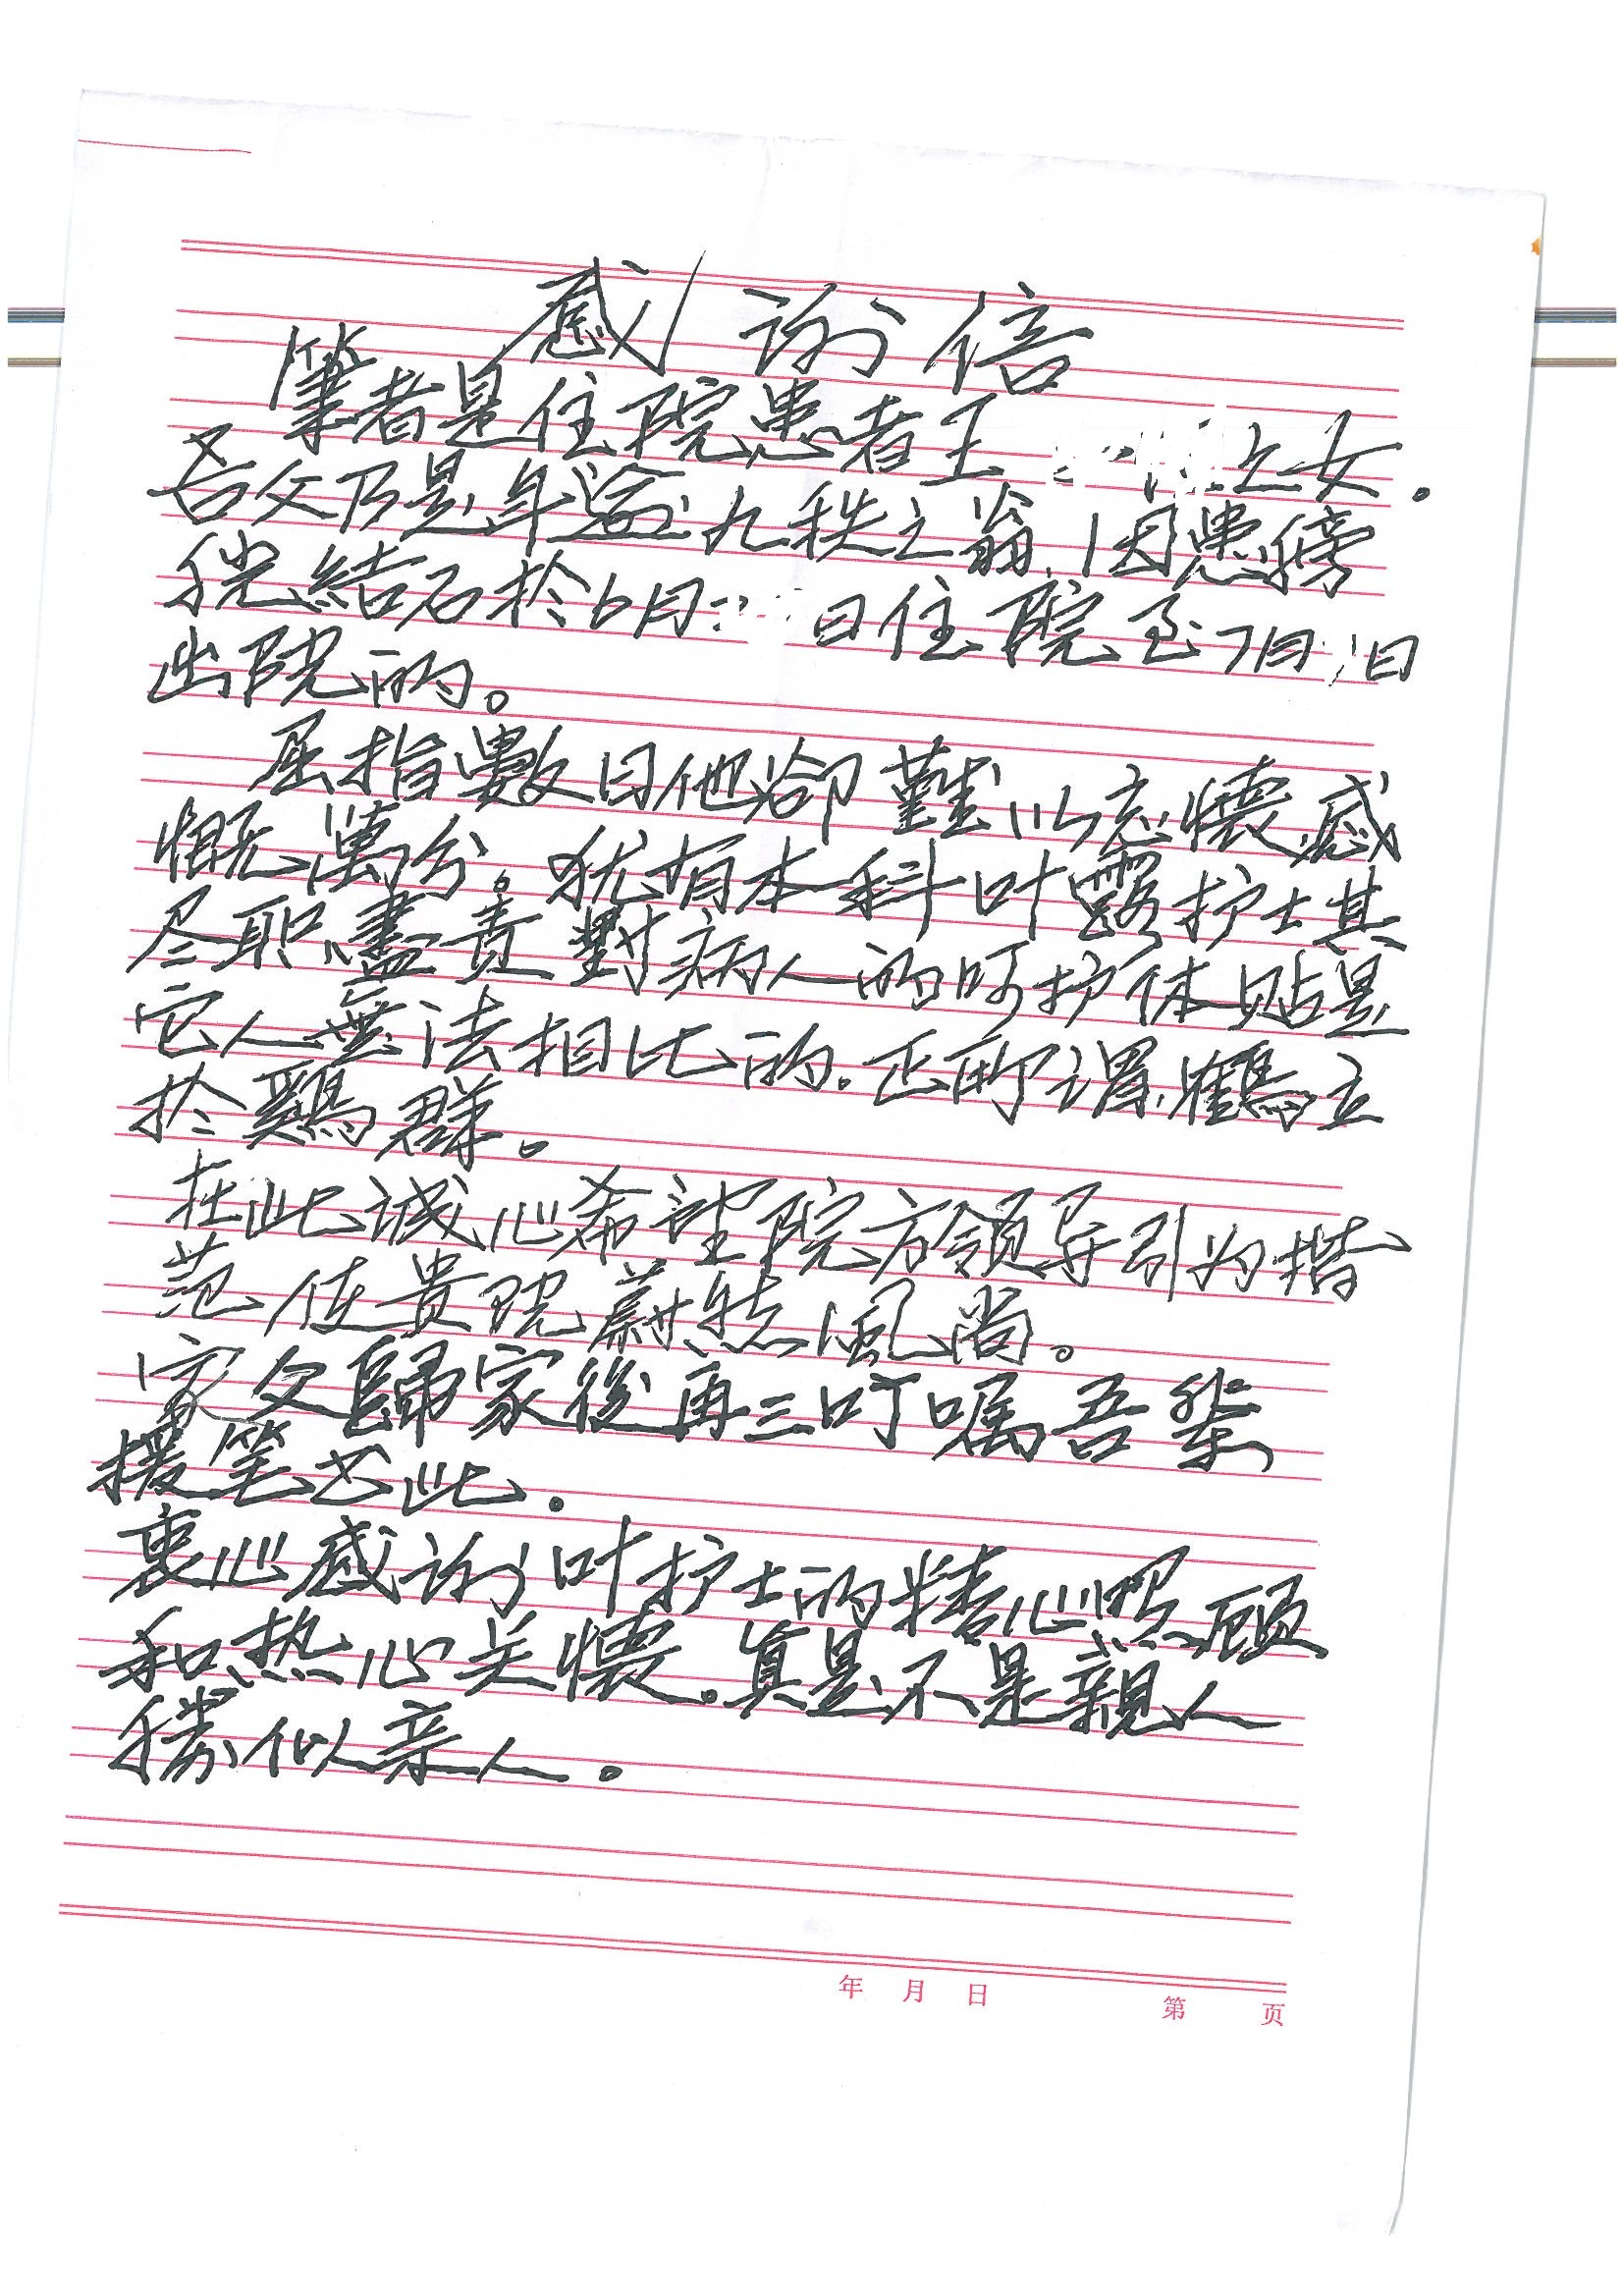 感谢信
筆者是住院患者王 之女.
吾父乃是年逾九秩之翁,因患膀
胱結石於6月 日住院至7月 日
出院的。
屈指數日他卻難以忘懷,感
慨萬分。犹有本科叶露护士其
尽职、盡责對病人的呵护体贴是
它人無法相比的.正所谓,鶴立
於鷄群。
在此诚心希望院方領导引为楷
范使贵院蔚然風尚。
家父歸家後再三叮嘱吾辈
援笔书此.
衷心感谢叶护士的精心照顾
和热心关懷。真是不是親人
勝似亲人。
年 月 日 第 页